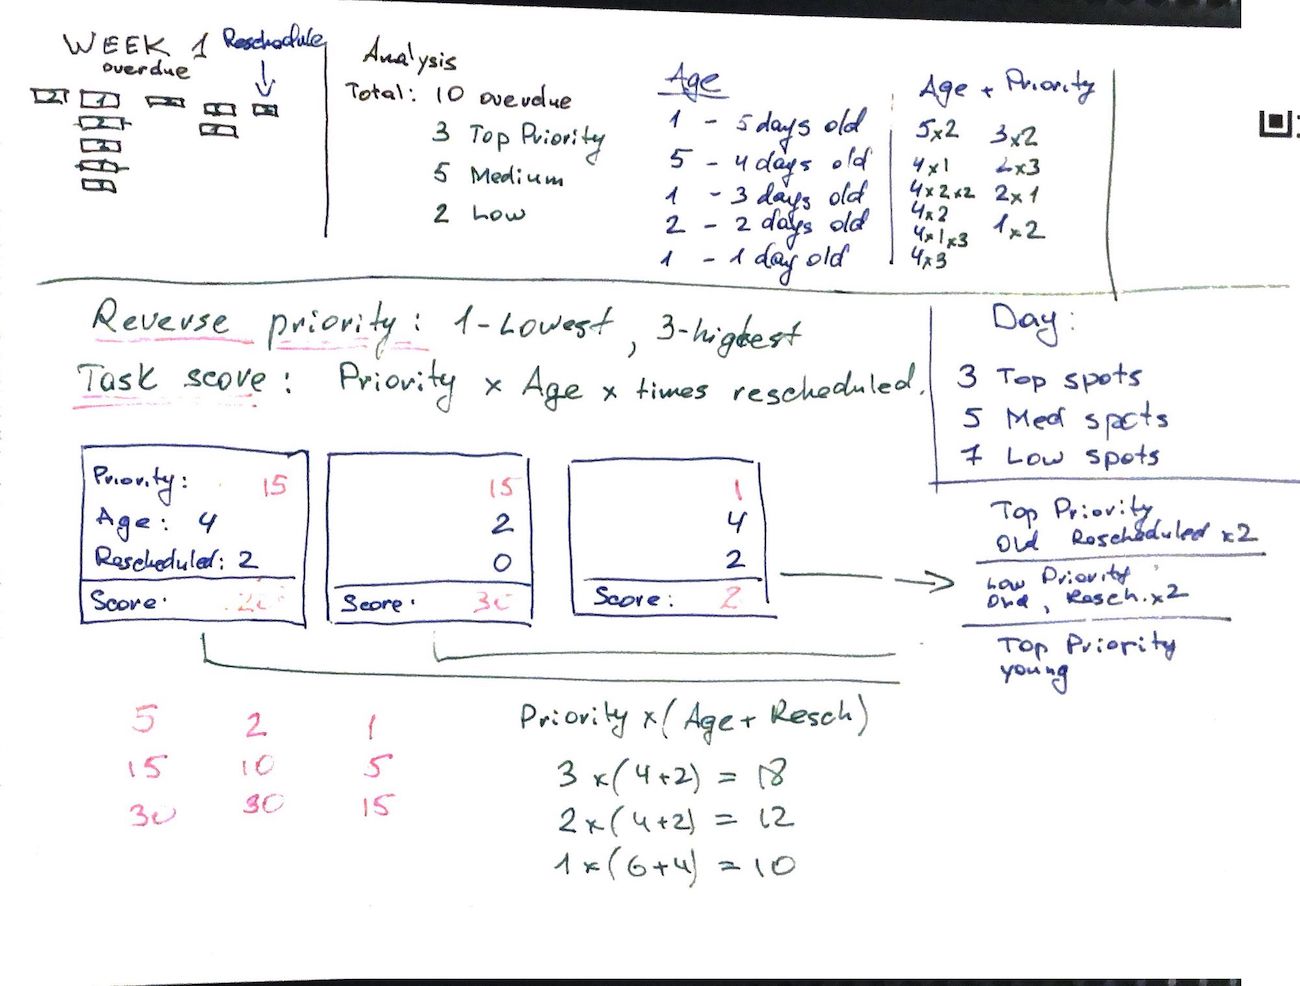 WEEK 1
overdue
Reschedule
2
1
2
Analysis
Total: 10 overdue
3 Top Priority
5 Medium
2 Low
Age
1 - 5 days old
5 - 4 days old
1 - 3 days old
2 - 2 days old
1 - 1 day old
Age + Priority
5x2
4x1
4x2x2
4x2
4x1x3
4x3
3x2
2x3
2x1
1x2
Reverse priority: 1-Lowest, 3-highest
Task score: Priority x Age x times rescheduled.
Day:
3 Top spots
5 Med spots
7 Low spots
Priority: 15
Age: 4
Rescheduled: 2
Score:
15
2
0
Score: 30
1
4
2
Score: 2
Top Priority
Old Rescheduled x2
Low Priority
Old, Resch. x2
Top Priority
young
5 2 1
15 10 5
30 30 15
Priority x (Age + Resch)
3 x (4+2) = 18
2 x (4+2) = 12
1 x (6+4) = 10